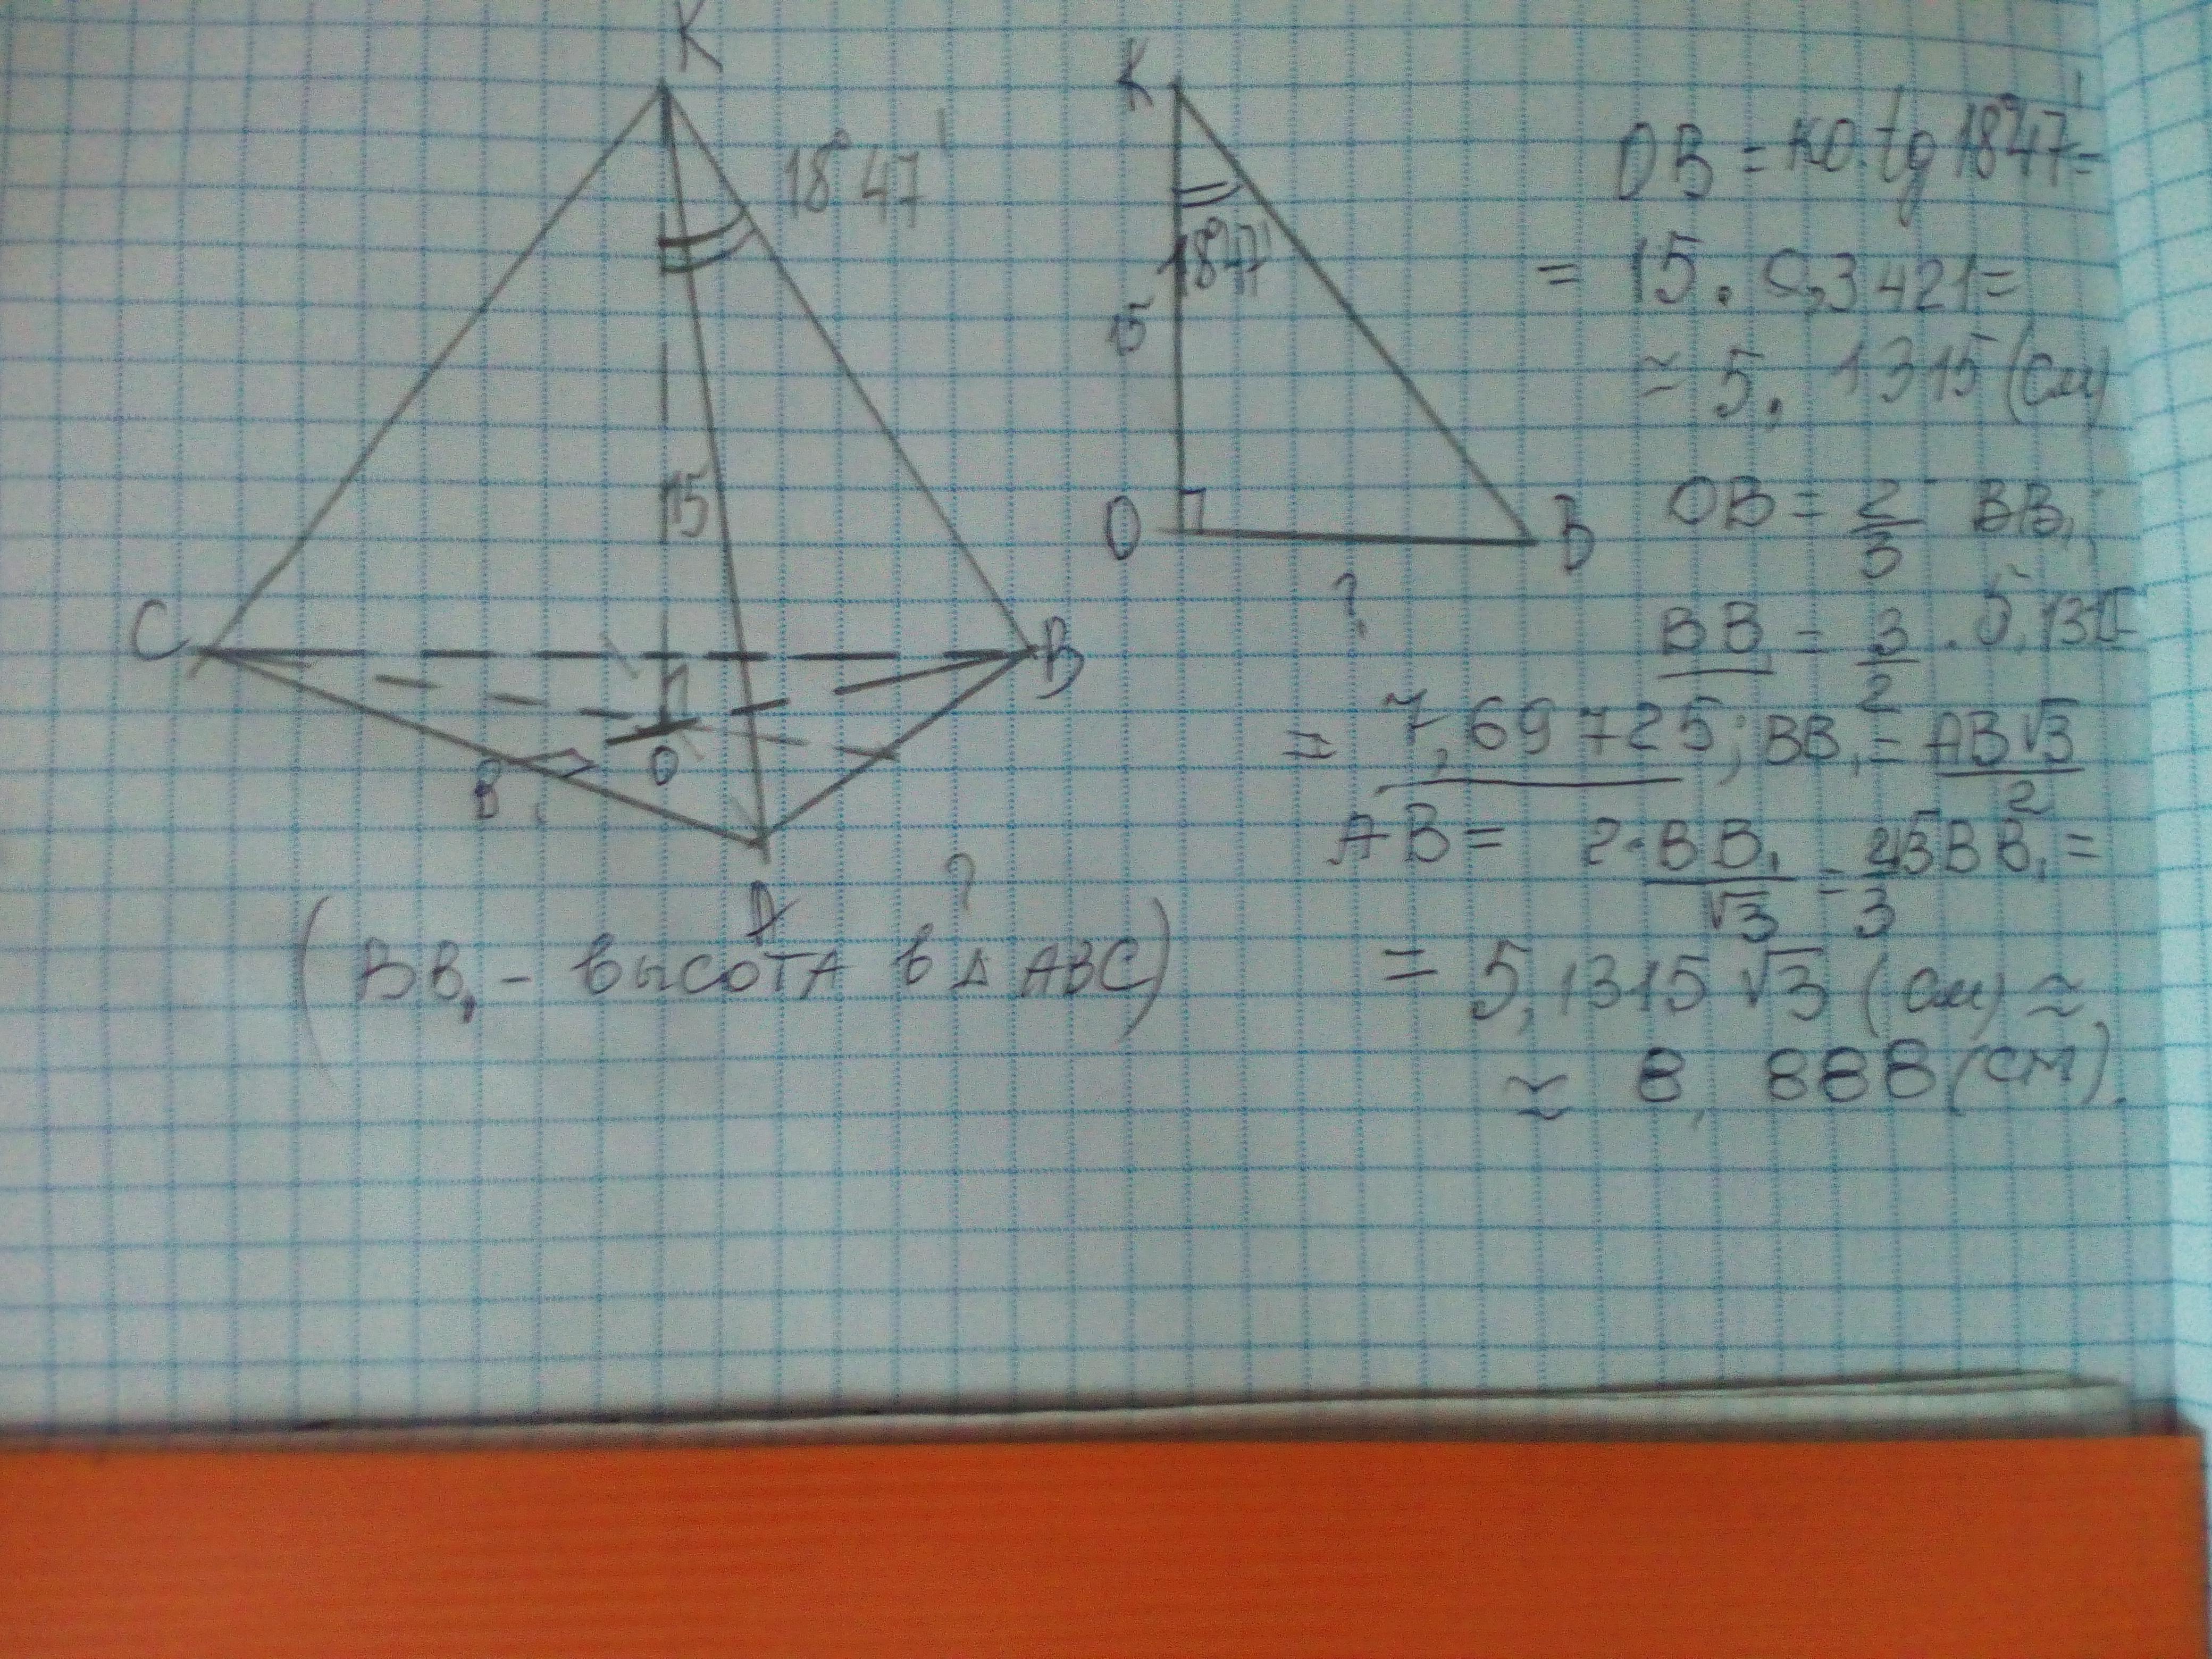 K
18°47'
15
C
B
B₁
O
A
?
(BB₁ - высота в Δ ABC)
K
18°47'
15
O
B
?
OB = KO·tg 18°47' =
= 15 · 0,3421 =
≃ 5, 1315 (см)
OB = 2/3 BB₁;
BB = 3/2 · 5,1315
= 7,69725; BB₁ = AB√3/2
AB = 2·BB₁/√3 = 2√3BB₁/3 =
= 5,1315 √3 (см) ≃
≃ 8, 888 (см).